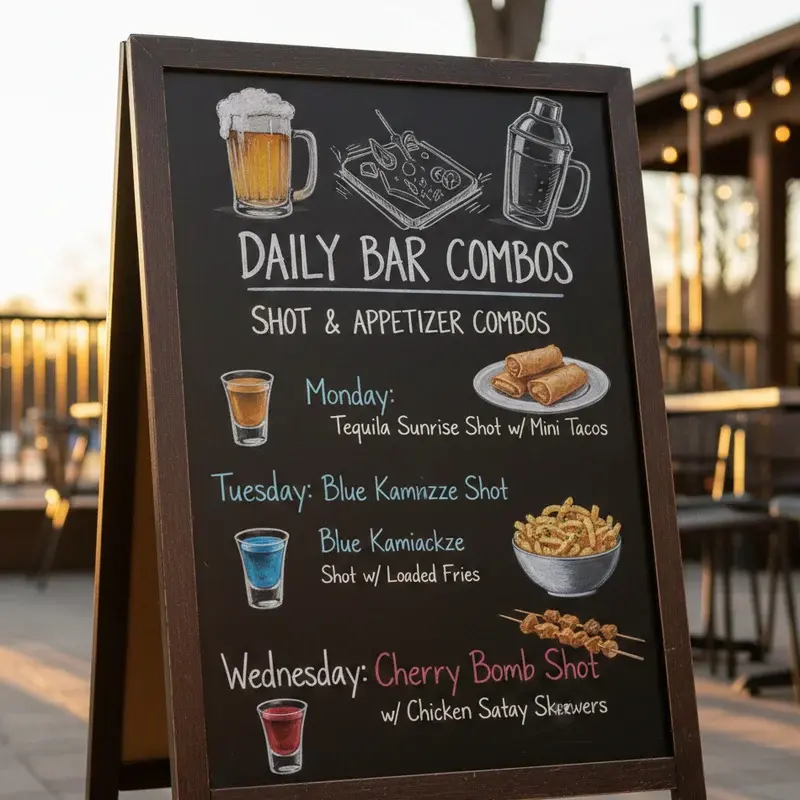 DAILY BAR COMBOS
SHOT & APPETIZER COMBOS
Monday:
Tequila Sunrise Shot w/ Mini Tacos
Tuesday: Blue Kamnizze Shot
Blue Kamiackze
Shot w/ Loaded Fries
Wednesday: Cherry Bomb Shot
w/ Chicken Satay